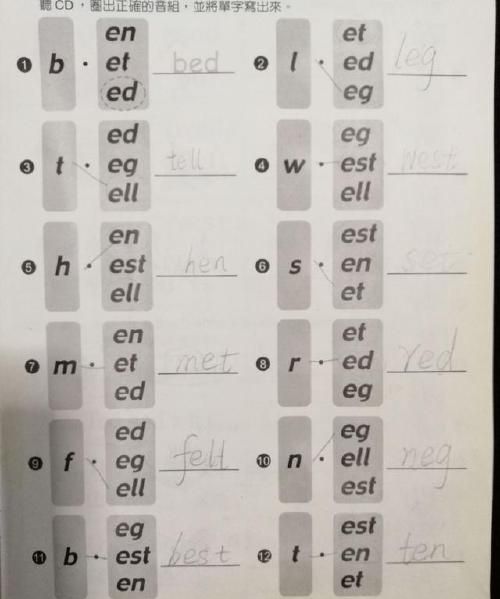 聽CD，圈出正確的音組，並將單字寫出來。
❶ b · en et ed bed
❷ l · et ed eg leg
❸ t · ed eg ell tell
❹ w · eg est ell west
❺ h · en est ell hen
❻ s · est en et set
❼ m · en et ed met
❽ r · et ed eg red
❾ f · ed eg ell fell
❿ n · eg ell est neg
⓫ b · eg est en best
⓬ t · est en et ten